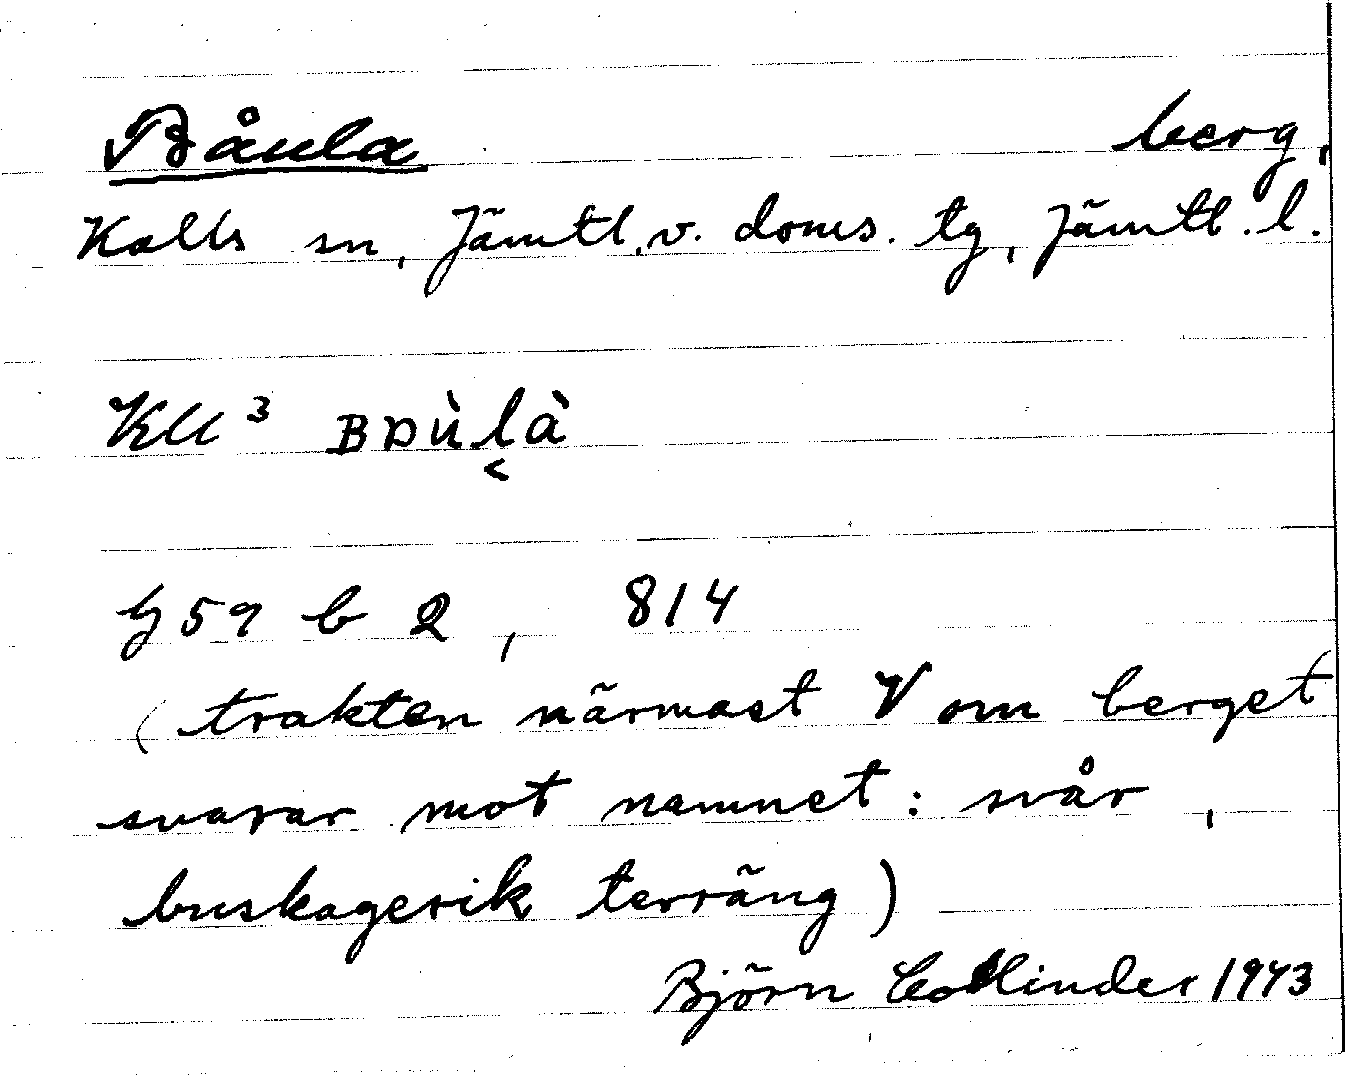 Båula berg,
Kalls sn, Jämtl. v. doms. tg, Jämtl. l.
Kll³ ʙᴅùl̬à
G 59 b 2, 814
(trakten närmast V om berget
svarar mot namnet: svår,
buskagerik terräng)
Björn Collinder 1943